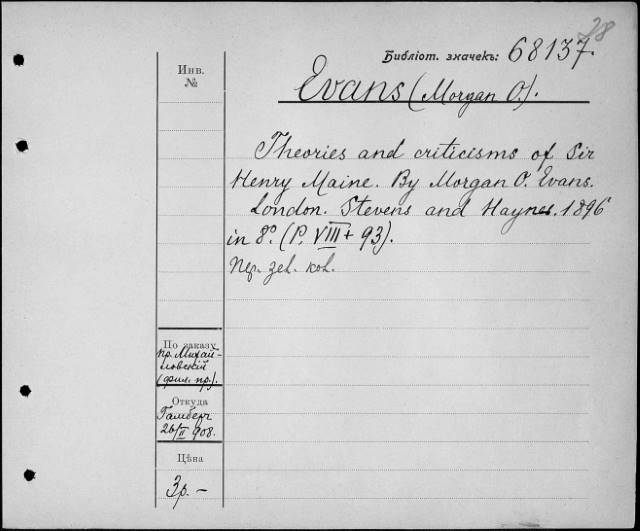 28
Библіот. значекъ: 68137.
Инв.
№
Evans (Morgan O.).
Theories and criticisms of Sir
Henry Maine. By Morgan O. Evans.
London. Stevens and Haynes. 1896
in 8º. (P. VIII + 93).
Пер. зел. кол.
По заказу
пр. Михай-
ловскій
(фил. пр.).
Откуда
Гамберг
26/II 908.
Цѣна
3р. –